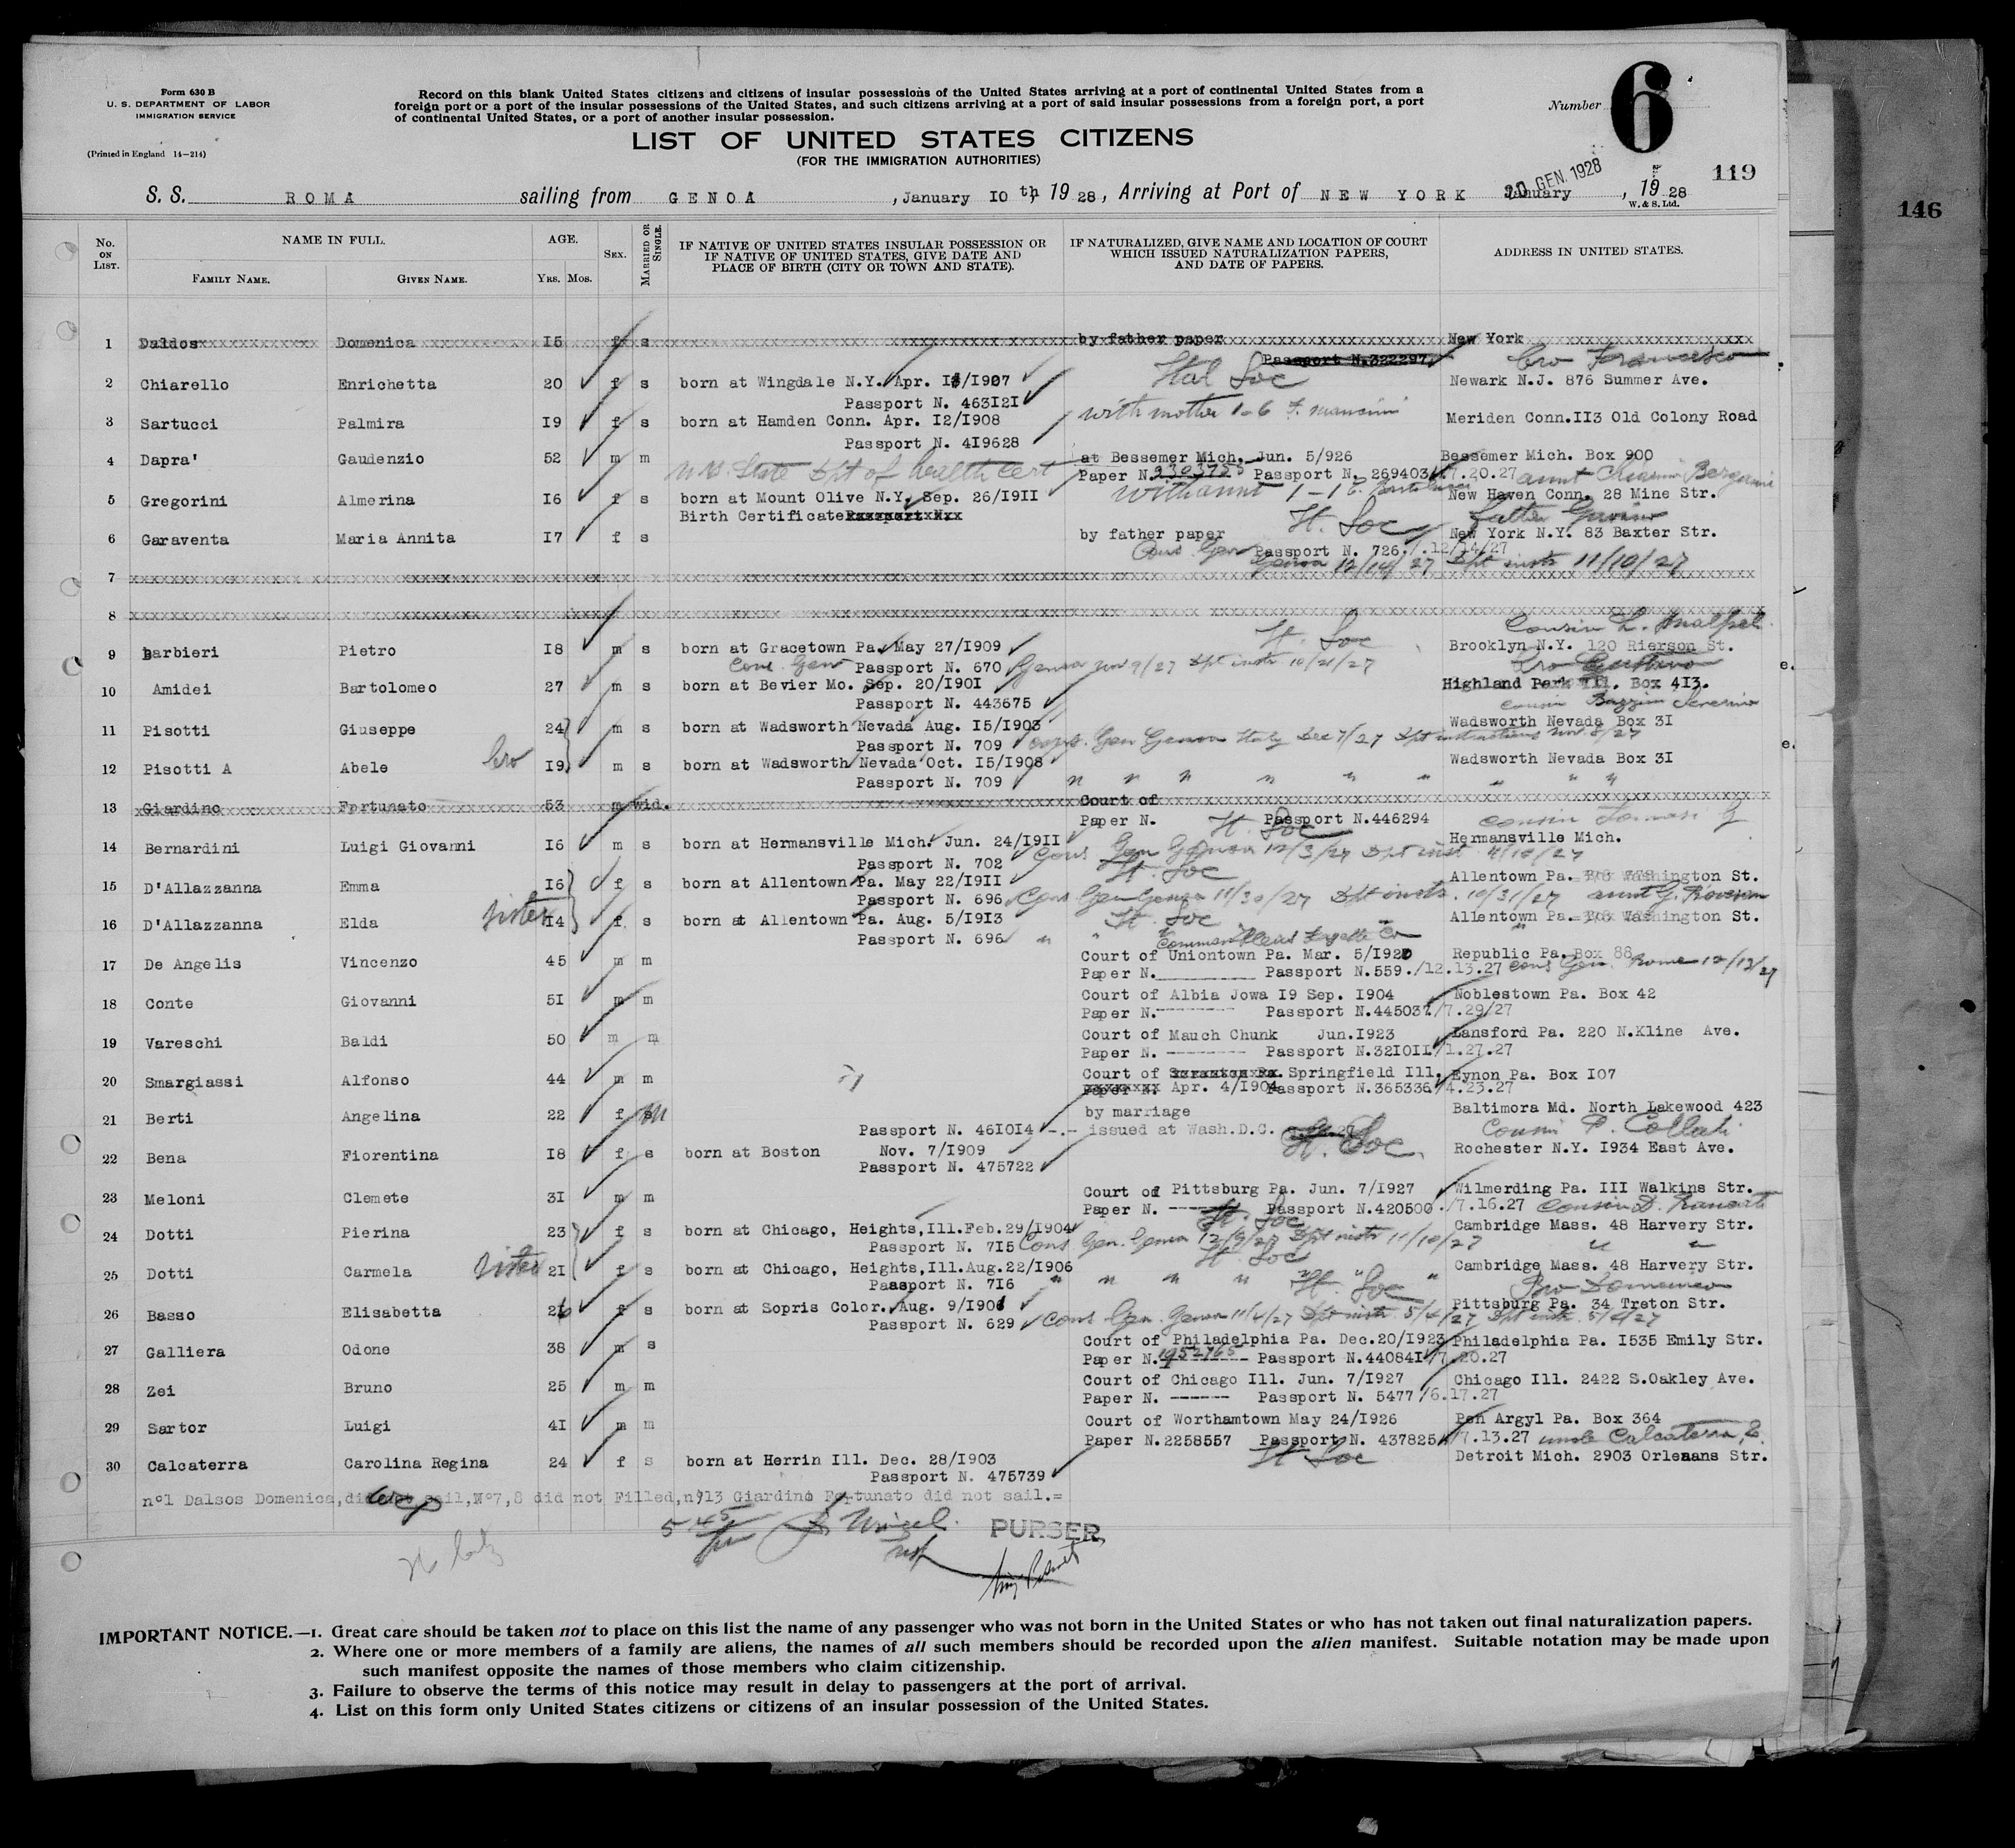 Form 630 B
U. S. DEPARTMENT OF LABOR
IMMIGRATION SERVICE
(Printed in England 14—214)
Record on this blank United States citizens and citizens of insular possessions of the United States arriving at a port of continental United States from a
foreign port or a port of the insular possessions of the United States, and such citizens arriving at a port of said insular possessions from a foreign port, a port
of continental United States, or a port of another insular possession.
Number 6
LIST OF UNITED STATES CITIZENS
(FOR THE IMMIGRATION AUTHORITIES)
119
146
S. S. ROMA sailing from GENOA, January 10 th, 1928, Arriving at Port of NEW YORK January, 1928
GEN. 1928
W. & S. Ltd.
No. ON LIST. NAME IN FULL. AGE. SEX. MARRIED OR SINGLE. IF NATIVE OF UNITED STATES INSULAR POSSESSION OR IF NATIVE OF UNITED STATES, GIVE DATE AND PLACE OF BIRTH (CITY OR TOWN AND STATE). IF NATURALIZED, GIVE NAME AND LOCATION OF COURT WHICH ISSUED NATURALIZATION PAPERS, AND DATE OF PAPERS. ADDRESS IN UNITED STATES.
FAMILY NAME. GIVEN NAME. YRS. MOS.
1 Daldos Domenica 15 f s by father paper New York
Passport N.322297 bro Francesco
2 Chiarello Enrichetta 20 f s born at Wingdale N.Y. Apr. /1907 Ital Soc Newark N.J. 876 Summer Ave.
Passport N. 463121
3 Sartucci Palmira 19 f s born at Hamden Conn. Apr. 12/1908 with mother 1-6 Meriden Conn.113 Old Colony Road
Passport N. 419628
4 Dapra' Gaudenzio 52 m m at Bessemer Mich. Jun. 5/926 Bessemer Mich. Box 900
State Dpt of health Cert Paper N. Passport N. 269403 /7.20.27 aunt
5 Gregorini Almerina 16 f s born at Mount Olive N.Y. Sep. 26/1911 with aunt New Haven Conn. 28 Mine Str.
Birth Certificate It. Soc father
6 Garaventa Maria Annita 17 f s by father paper New York N.Y. 83 Baxter Str.
Cons Gen Passport N. 726./.12/14/27
Genoa 12/14/27 Dpt insts 11/10/27
7
8
Cousin L.
9 Barbieri Pietro 18 m s born at Gracetown Pa. May 27/1909 It. Soc Brooklyn N.Y. 120 Rierson St.
Cons. Gen Passport N. 670 Genoa Nov 9/27 Dpt insts 10/21/27 bro
10 Amidei Bartolomeo 27 m s born at Bevier Mo. Sep. 20/1901 Highland Park Ill. Box 413.
Passport N. 443675 cousin
11 Pisotti Giuseppe 24 m s born at Wadsworth Nevada Aug. 15/1903 Wadsworth Nevada Box 31
Passport N. 709 Cons. Gen Genoa Italy Dec 7/27 Dpt instructions Nov. 8/27
12 Pisotti A Abele bro 19 m s born at Wadsworth Nevada Oct. 15/1908 Wadsworth Nevada Box 31
Passport N. 709 " " " " " " " " "
13 Giardino Fortunato 53 m wid. Court of
Paper N. Passport N.446294 cousin
14 Bernardini Luigi Giovanni 16 m s born at Hermansville Mich. Jun. 24/1911 It. Soc Hermansville Mich.
Passport N. 702 Cons Gen Genoa 12/3/27 Dpt inst
15 D'Allazzanna Emma 16 f s born at Allentown Pa. May 22/1911 It. Soc Allentown Pa. Washington St.
Passport N. 696 Cons Gen Genoa 11/30/27 Dpt insts. 10/31/27 aunt G.
16 D'Allazzanna Elda sister 14 f s born at Allentown Pa. Aug. 5/1913 It. Soc Allentown Pa. Washington St.
Passport N. 696 " " "
Common Pleas Fayette Co
17 De Angelis Vincenzo 45 m m Court of Uniontown Pa. Mar. 5/1920 Republic Pa. Box 88
Paper N. Passport N.559./12.13.27 Cons Gen. Rome 12/13/27
18 Conte Giovanni 51 m m Court of Albia Jowa 19 Sep. 1904 Noblestown Pa. Box 42
Paper N. -------- Passport N.445037/7.29/27
19 Vareschi Baldi 50 m m Court of Mauch Chunk Jun.1923 Lansford Pa. 220 N.Kline Ave.
Paper N. -------- Passport N.321011/1.27.27
20 Smargiassi Alfonso 44 m m Court of Springfield Ill. Eynon Pa. Box 107
Apr. 4/1904 Passport N.365336/4.23.27
21 Berti Angelina 22 f m by marriage Baltimora Md. North Lakewood 423
Passport N. 461014 -.- issued at Wash.D.C. Cousin P.
22 Bena Fiorentina 18 f s born at Boston Nov. 7/1909 It. Soc. Rochester N.Y. 1934 East Ave.
Passport N. 475722
23 Meloni Clemete 31 m m Court of Pittsburg Pa. Jun. 7/1927 Wilmerding Pa. 111 Walkins Str.
Paper N. Passport N.420500 ./7.16.27 Cousin D.
24 Dotti Pierina 23 f s born at Chicago, Heights,Ill.Feb.29/1904 It. Soc Cambridge Mass. 48 Harvery Str.
Passport N. 715 Cons Gen. Genoa 12/9/27 Dpt insts 11/10/27 " "
25 Dotti Carmela sister 21 f s born at Chicago, Heights,Ill.Aug.22/1906 It. Soc Cambridge Mass. 48 Harvery Str.
Passport N. 716 " " " " " It. Soc " Bro Domenico
26 Basso Elisabetta 26 f s born at Sopris Color. Aug. 9/1901 Pittsburg Pa. 34 Treton Str.
Passport N. 629 Cons Gen. Genoa 11/4/27 Dpt insts. 5/4/27 Dpt insts. 5/4/27
27 Galliera Odone 38 m s Court of Philadelphia Pa. Dec.20/1923 Philadelphia Pa. 1535 Emily Str.
Paper N. 1952765 Passport N.440841/7.20.27
28 Zei Bruno 25 m m Court of Chicago Ill. Jun. 7/1927 Chicago Ill. 2422 S.Oakley Ave.
Paper N. ------ Passport N. 5477 /6.17.27
29 Sartor Luigi 41 m m Court of Worthamtown May 24/1926 Pen Argyl Pa. Box 364
Paper N.2258557 Passport N. 437825 /7.13.27 uncle Calcaterra,
30 Calcaterra Carolina Regina 24 f s born at Herrin Ill. Dec. 28/1903 It Soc Detroit Mich. 2903 Orleaans Str.
Passport N. 475739
n°1 Dalsos Domenica, did not sail,N°7,8 did not Filled,n°13 Giardino Fortunato did not sail.=
PURSER
IMPORTANT NOTICE.—1. Great care should be taken not to place on this list the name of any passenger who was not born in the United States or who has not taken out final naturalization papers.
2. Where one or more members of a family are aliens, the names of all such members should be recorded upon the alien manifest. Suitable notation may be made upon
such manifest opposite the names of those members who claim citizenship.
3. Failure to observe the terms of this notice may result in delay to passengers at the port of arrival.
4. List on this form only United States citizens or citizens of an insular possession of the United States.